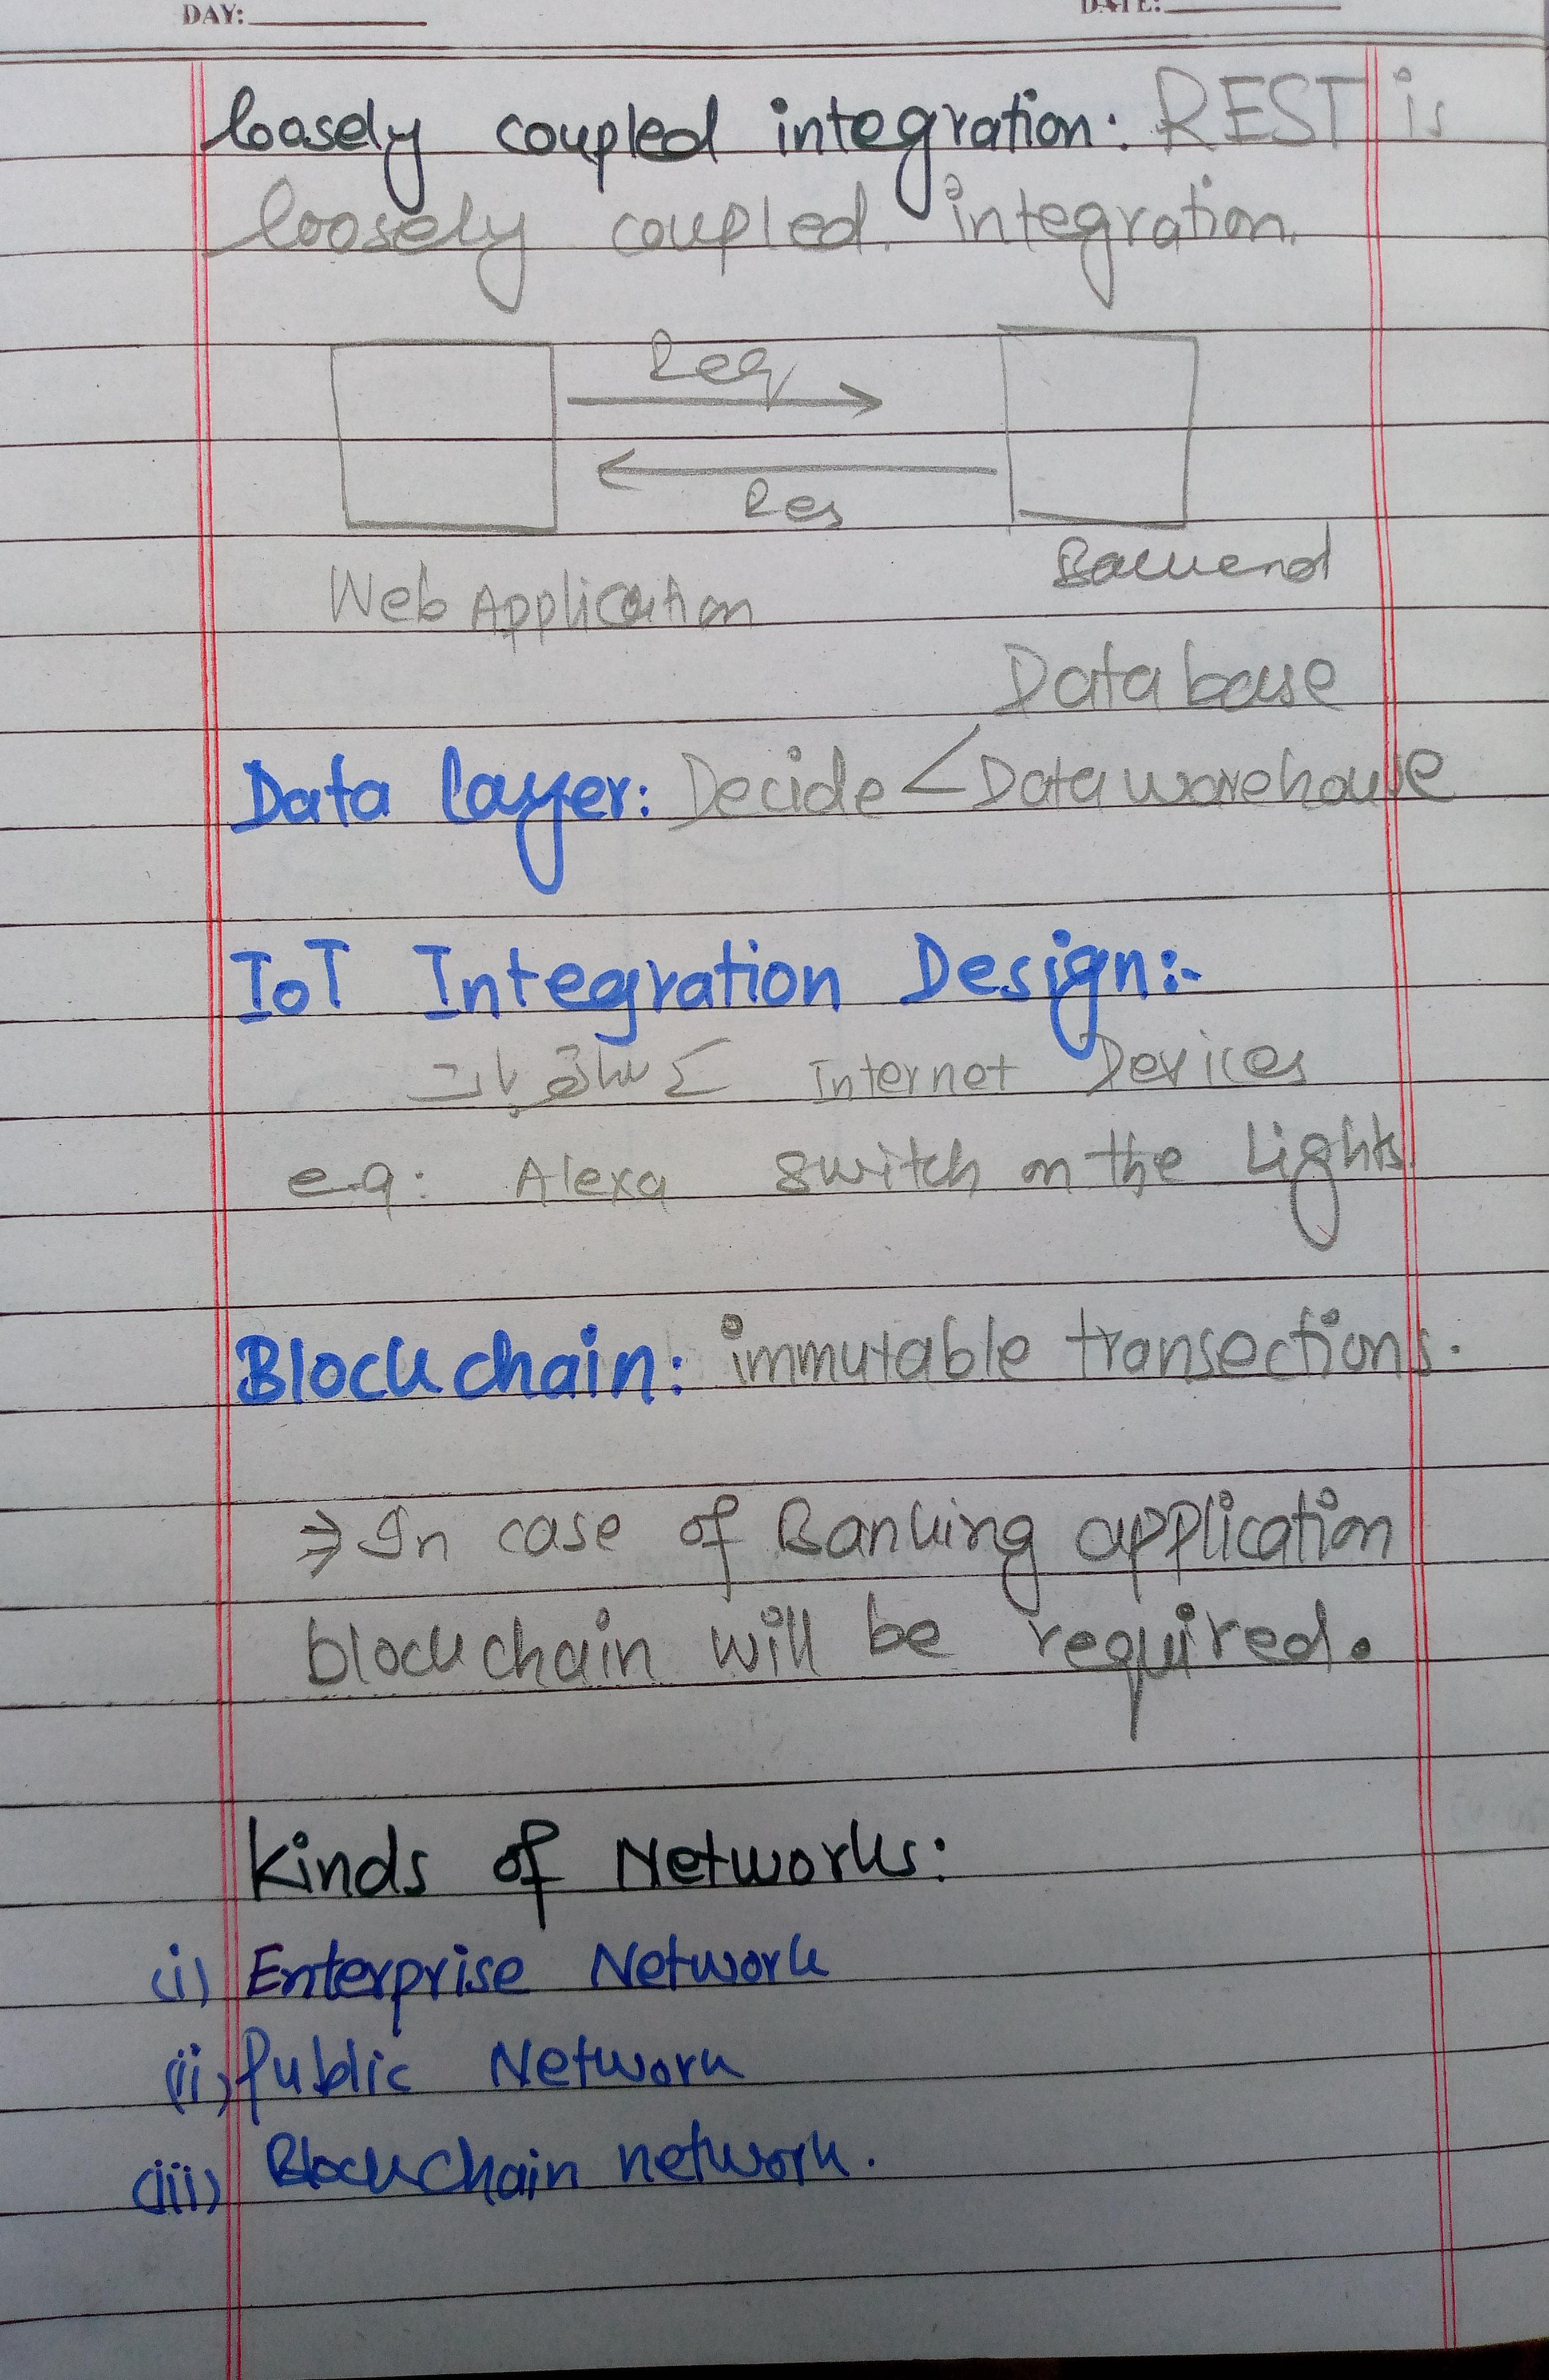 DAY:
DATE:
loosely coupled integration: REST is
loosely coupled integration.
Req
Res
Web Application
Backend
Database
Data layer: Decide < Datawarehouse
IoT Integration Design:-
Internet Devices کے ساتھ بات
e.g: Alexa switch on the Lights.
Blockchain: immutable transections.
⇒ In case of Banking application
blockchain will be required.
Kinds of Networks:
(i) Enterprise Network
(ii) Public Network
(iii) Blockchain network.